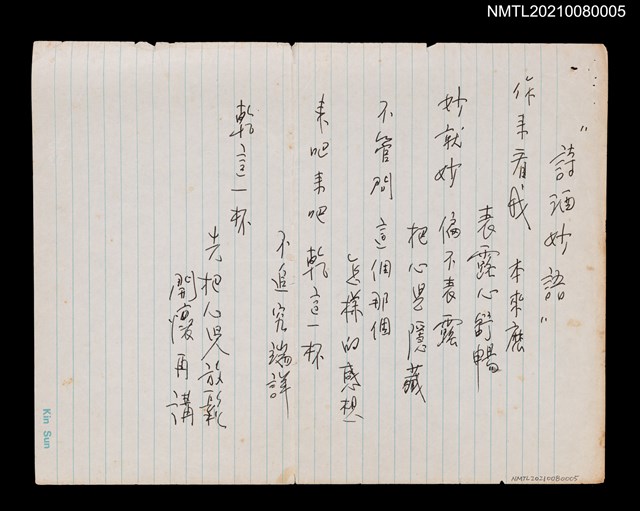 NMTL20210080005
"詩酒妙語"
你來看我 本來麼
表露心舒暢
妙就妙 偏不表露
把心思隱藏
不管問 這個那個
怎樣的感想
來吧來吧 乾這一杯
不追究端詳
乾這一杯
先把心思放鬆
開懷再講
Kin Sun
NMTL20210080005